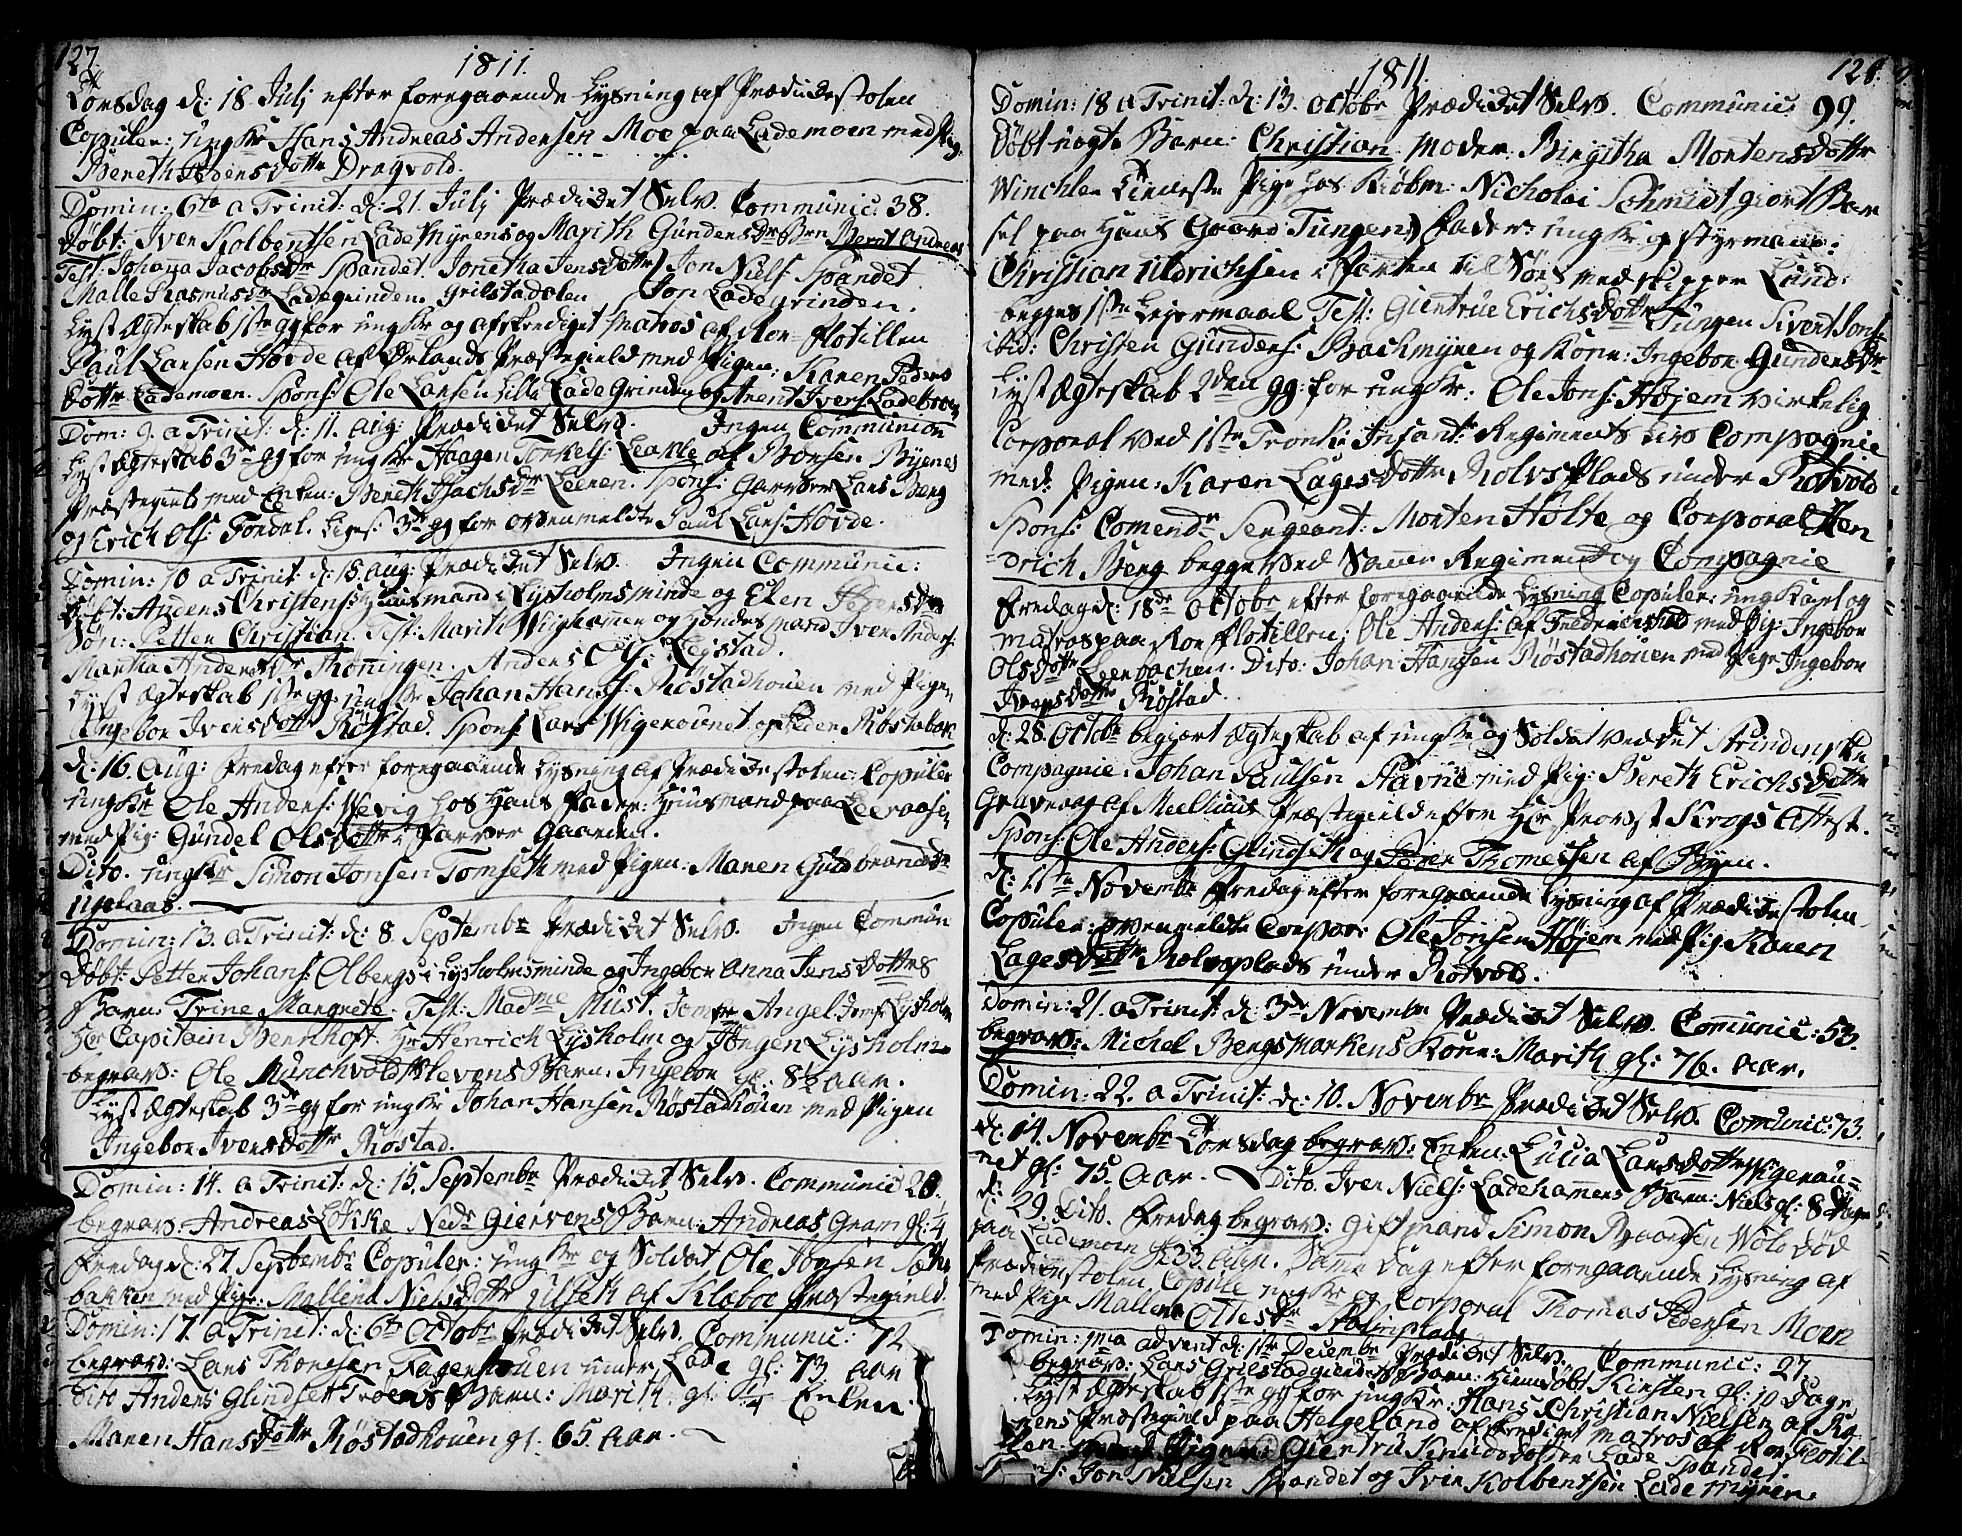 127.
1811.
Torsdag d: 18 Julj efter foregaaende Lysning af Prædidestolen
Copuler: ungkr Hans Andreas Andersen Moe paa Lademoen med Pig:
Bereth Pedersdottr Dragvold.
Domin: 6ta a Trinit: d: 21. Julj Prædidet Selv. Communic: 38.
Døbt: Iver Kolbentsen Lade Myrens og Marith Gundersdr Brn Bernt Andreas
Test: Johanna Jacobsdr Spandet. Jonetha Jensdottr Jon Niels: Spandet
Malle Rasmusdr Ladegrinden. Grilstadalen Jon Lade Grinden.
Lyst Ægteskab 1ste gg for ungkr og afskediget Matros af Roe-flotillen
Paul Larsen Hovde af Ørlands Præstegield med Pigen: Karen Peders
dottr Lademoen. Spons: Ole Larsen Lille Lade Grinden og Arent Ivers: Ladebroen
Dom: 9. a Trinit: d: 11. Aug: Prædidet Selv. Ingen Communion
Lyst Ægteskab 3de gg for ungkr Haagen Torkels: Leakle af Børsen Byenes
Præstegield med Enken: Bereth Isachsdr Leeren. Spons: Garver Lars Berg
og Erich Ols: Fondal. Lige: 3de gg for ovenmeldte Paul Lars: Hovde.
Domin: 10 a Trinit: d: 18. Aug: Prædidet Selv. Ingen Communic:
Døbt: Anders Christens: Huusmand i Lysholmsminde og Elen Pedersdr
Søn: Petter Christian. Test: Marith Wighamer og Huusmand Iver Anders:
Martha Andersdr Rønningen. Anders Leistad.
Lyst Ægteskab 1ste gg: ungkr Johan Hans: Røstadhouen med Pigen
Ingebor Iversdottr Røstad. Spons: Lars Wigerounet og Peder Røstadbak
d: 16. Aug: Fredag efter foregaaende Lysning af Prædidestolen: Copuler
ungkr Ole Anders: Wevig hos Hans Fader: Huusmand paa Leeraasen,
med Pig: Gundel Olsdottr: Farver Gaarden.
Dito. ungkr Simon Jonsen Tomseth med Pigen: Maren Guldbrandsdr
Uglaas.
Domin: 13. a Trinit: d: 8. Septembr Prædidet Selv. Ingen Commun
Døbt: Petter Johans: Olbergs i Lysholmsminde og Ingebor Anna Jensdottrs
Barn: Trine Margrete. Test: Madme Must. Jomfr Angel. Jomf: Lysholm
Hr Capitain Bernhoft. Hr Henrich Lysholm og Jørgen Lysholm
begrav: Ole Munchvoldstevens Barn: Ingebor gl: 8½ Aar.
Lyst Ægteskab 3de gg for ungkr Johan Hansen Røstadhouen med Pigen
Ingebor Iversdottr Røstad.
Domin: 14. a Trinit: d: 15. Septembr Prædidet Selv. Communic 28.
begrav: Andreas Løkke Nedr Giervens Barn: Andreas Gram gl: ¼
Fredag d: 27 Septembr Copuler: ungkr og Soldat Ole Jonsen
bakken med Pig: Mallena Nielsdottr Ulseth af Klæboe Præstegield.
Domin: 17. a Trinit: d: 6te Octobr Prædidet Selv. Communic: 72
begrav: Lars Thonesen Fagerhouen under Lade gl: 73 Aar
Dito Anders Glindset Troens Barn: Marith. gl ¼ Enken
Maren Hansdottr Røstadhouen gl. 65. Aar.
1811.
128.
Domin: 18 a Trinit: d: 13. Octobr Prædidet Selv. Communic: 99.
Døbt uægte Barn: Christian Moder: Birgitha Mortensdottr
Winchler tieneste Pige hos Kiøbm: Nicholai Schmidt giort Bar
sel paa Hans Gaard Tungen) Fader: ungkr og Styrmand:
Christian Uldrichsen i Farten til Søes med Skipper Lund:
begges 1ste Leiermaal Test: Giertrue Erichsdottr Tungen Sivert Jons:
ibid: Christen Gunders: Bachmyren og Kone: Ingebor Gundersdr
Lyst Ægteskab 2den gg: for ungkr: Ole Jons: Høiem virkelig
Corporal ved 1ste Tronh: Infant: Regiments Livs Compagnie
med: Pigen: Karen Lagesdottr Rolvs Plads under Rotvold
Spons: Comendr Sergeant: Morten Holte og Corporal Hen
drich Berg begge ved Samme Regiment og Compagnie
Fredag d: 18de Octobr efter foregaaende Lysning Copuler: ungkarl og
Matros paa Roe flotillen: Ole Anders: af Friderichstad med Pig: Ingebor
Olsdottr Leerbachen. Dito: Johan Hanssen Røstadhouen med Pige Ingebor
Iversdottr Røstad.
d: 28. Octobr begiært Ægteskab af ungkr og Soldat ved det Strindenske
Compagnie: Johan Paulsen Stavne med Pig: Bereth Erichsdottr
Gravraag af Meelhuus Præstegield efter Hr Provst Krogs Attest.
Spons: Ole Anders: Glindseth og Peder Thomessen af Byen.
d: 1ste Novembr Fredag efter foregaaende Lysning af Prædidestolen
Copuler: ovenmeldte Corpor: Ole Jonsen Høiem med Pig Karen
Lagesdottr Rolvsplads under Rotvold.
Domin: 21. a Trinit: d: 3de Novembr Prædidet Selv. Comunic: 53.
begrav: Michel Bergsmarkens Kone: Marith gl: 76. Aar.
Domin: 22. a Trinit: d: 10. Novembr Prædidet Selv. Comunic: 73.
d: 14. Novembr Torsdag begrav: Enken: Lucia Larsdottr Wigerau-
net gl: 75. Aar. Dito. Iver Niels: Ladehamers Barn: Niels gl: 8 Dage
d: 29. Dito. Fredag begrav: Giftmand Simon Baardsen Wold død
paa Lademoen gl 33. Aar. Samme Dag efter foregaaende Lysning af
Prædidestolen Copule: ungkr og Corporal Thomas Pedersen Moen
med Pige Mallena Ottesdr Rødinplads
Domin: 1ma Advent d: 1ste Decembr Prædidet Selv. Communic: 27.
begrav: Lars Grilstadgierdets Barn: hiemdøbt Kirsten gl: 10 Dage
Lyst Ægteskab 1ste gg for ungkr: Hans Christian Nielsen af Rø
nens Præstegield paa Helgeland afskediget Matros af Roe Flotil-
len. Pigen: Giertru Knudsdotter Lade Spandet.
Spons: Jon Nielsen Spandet og Iver Kolbentsen Lade Myren.